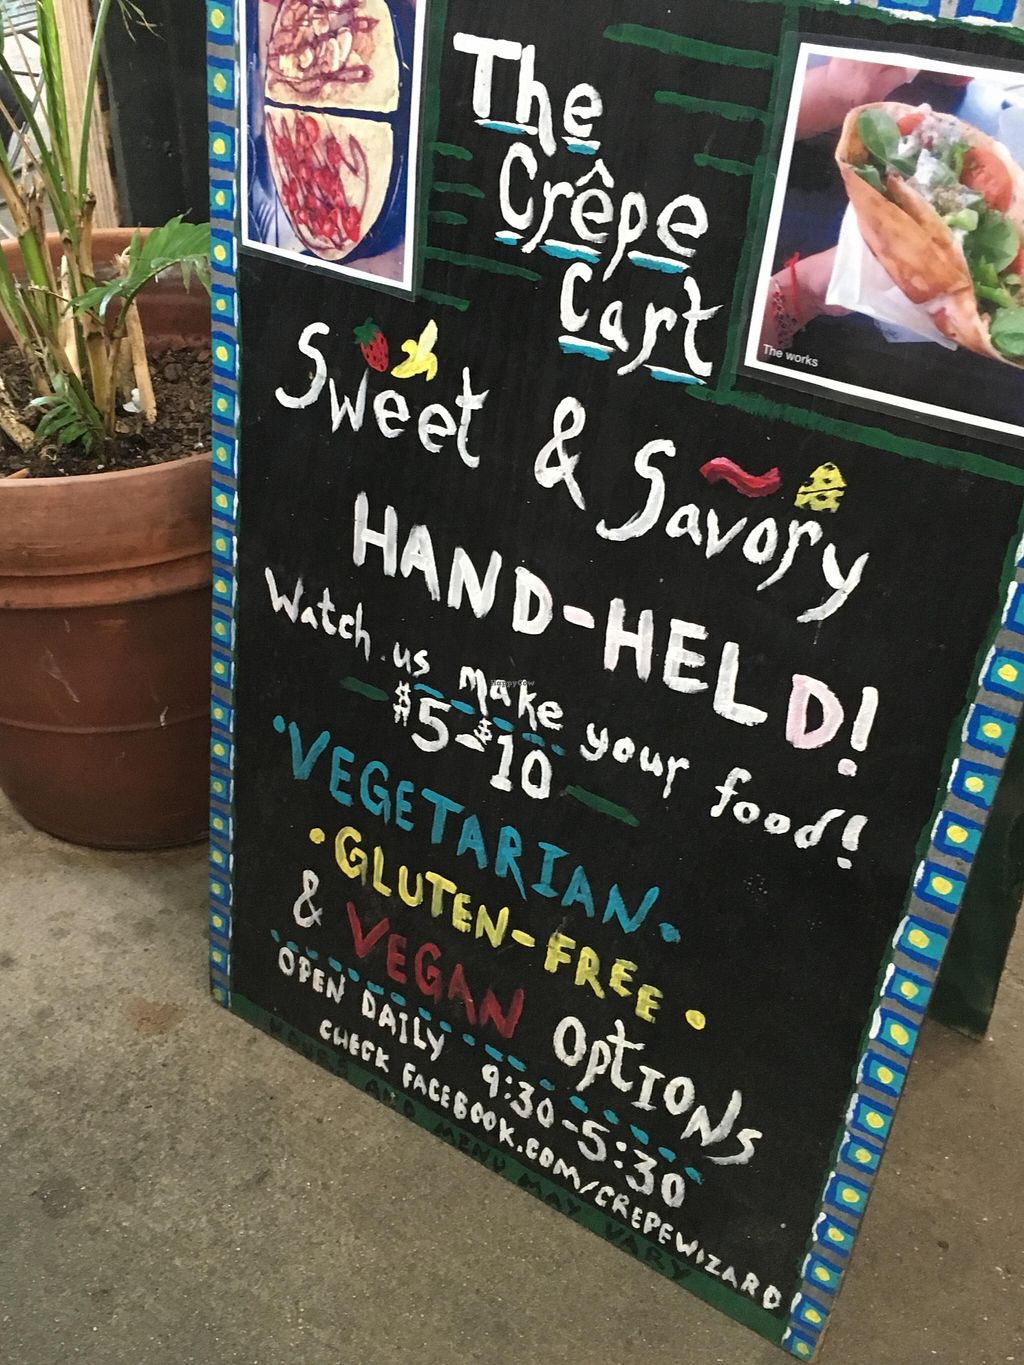 The
Crêpe
Cart
The works
Sweet & Savory
HAND-HELD!
Watch us make your food!
HappyCow
$5-$10
•VEGETARIAN•
•GLUTEN-FREE•
& VEGAN OptIONs
OPEN DAILY 9:30-5:30
CHECK FACEBOOK.COM/CREPEWIZARD
HOURS AND MENU MAY VARY